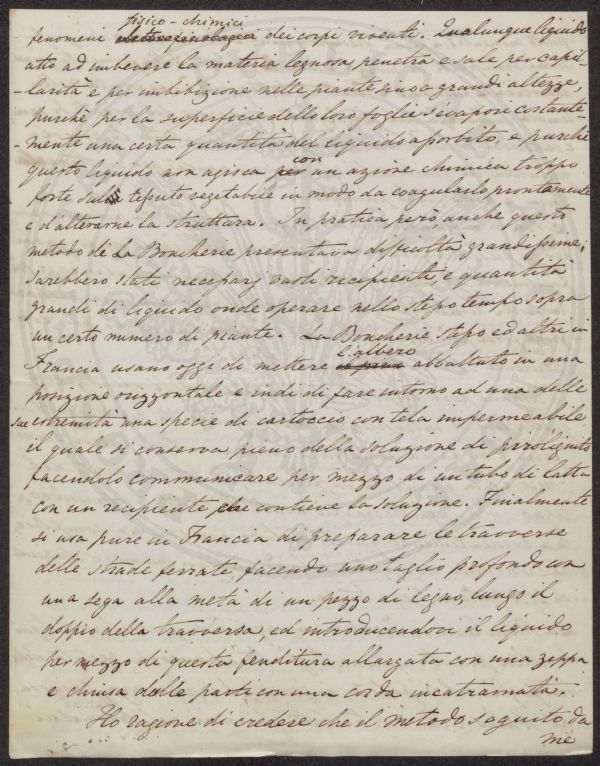 fisico-chimici
fenomeni dei corpi viventi. Qualunque liquido
atto ad imbevere la materia legnosa penetra e sale per capil-
-larità e per imbibizione nelle piante sino a grandi altezze,
purchè per la superficie delle loro foglie s'evapori costante-
-mente una certa quantità del liquido assorbito, e purchè
questo liquido non agisca con un azione chimica troppo
forte sul tessuto vegetabile in modo da coagularlo prontamente
e d'alterarne la struttura. In pratica però anche questo
metodo de La Boucherie presentava difficoltà grandissime;
sarebbero stati necessarj vasti recipienti e quantità
grandi di liquido onde operare nello stesso tempo sopra
un certo numero di piante. La Boucherie stesso ed altri in
Francia usano oggi di mettere l'albero abbattuto in una
posizione orizzontale e indi di fare intorno ad una delle
sue estremità una specie di cartoccio con tela impermeabile
il quale si conserva pieno della soluzione di pirolignito
facendolo communicare per mezzo di un tubo di latta
con un recipiente che contiene la soluzione. Finalmente
si usa pure in Francia di preparare le traverse
delle strade ferrate facendo un taglio profondo con
una sega alla metà di un pezzo di legno, lungo il
doppio della traversa, ed introducendovi il liquido
per mezzo di questa fenditura allargata con una zeppa
e chiusa dalle parti con una corda incatramata.
Ho ragione di credere che il metodo seguito da
me